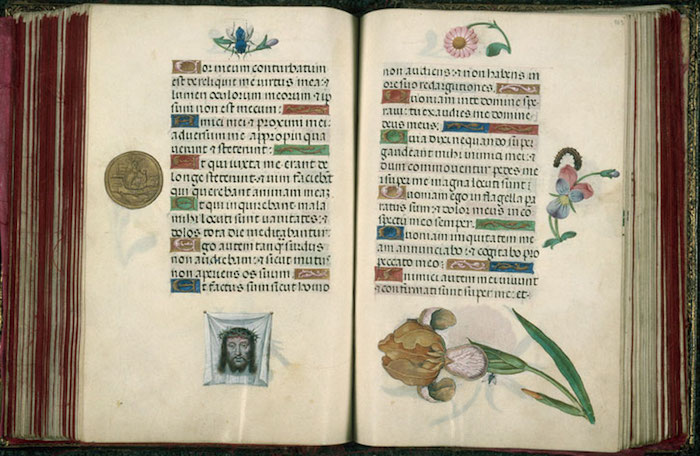 Cor meum conturbatum
est dereliquit me virtus mea: &
lumen oculorum meorum & ip
sum non est mecum:
Amici mei & proximi mei
adversum me appropinqua
verunt & steterunt:
Et qui iuxta me erant de
longe steterunt & vim faciebāt
qui querebant animam meā:
Et qui inquirebant mala
mihi locuti sunt vanitates &
dolos tota die meditabantur:
Ego autem tanq̃ surdus
non audiebam & sicut mutus
non aperiens os suum:
Et factus sum sicut homo
non audiens & non habens in
ore suo redargutiones.
Quoniam in te domine spe
ravi: tu exaudies me domine
deus meus:
Quia dixi nequando super
gaudeant mihi inimici mei: &
dum commoventur pedes mei
super me magna locuti sunt:
Quoniam ego in flagella pa
ratus sum & dolor meus in co
spectu meo semper:
Quoniam iniquitatem me
am annunciabo & cogitabo pro
peccato meo:
Inimici autem mei vivunt
& confirmati sunt super me: et